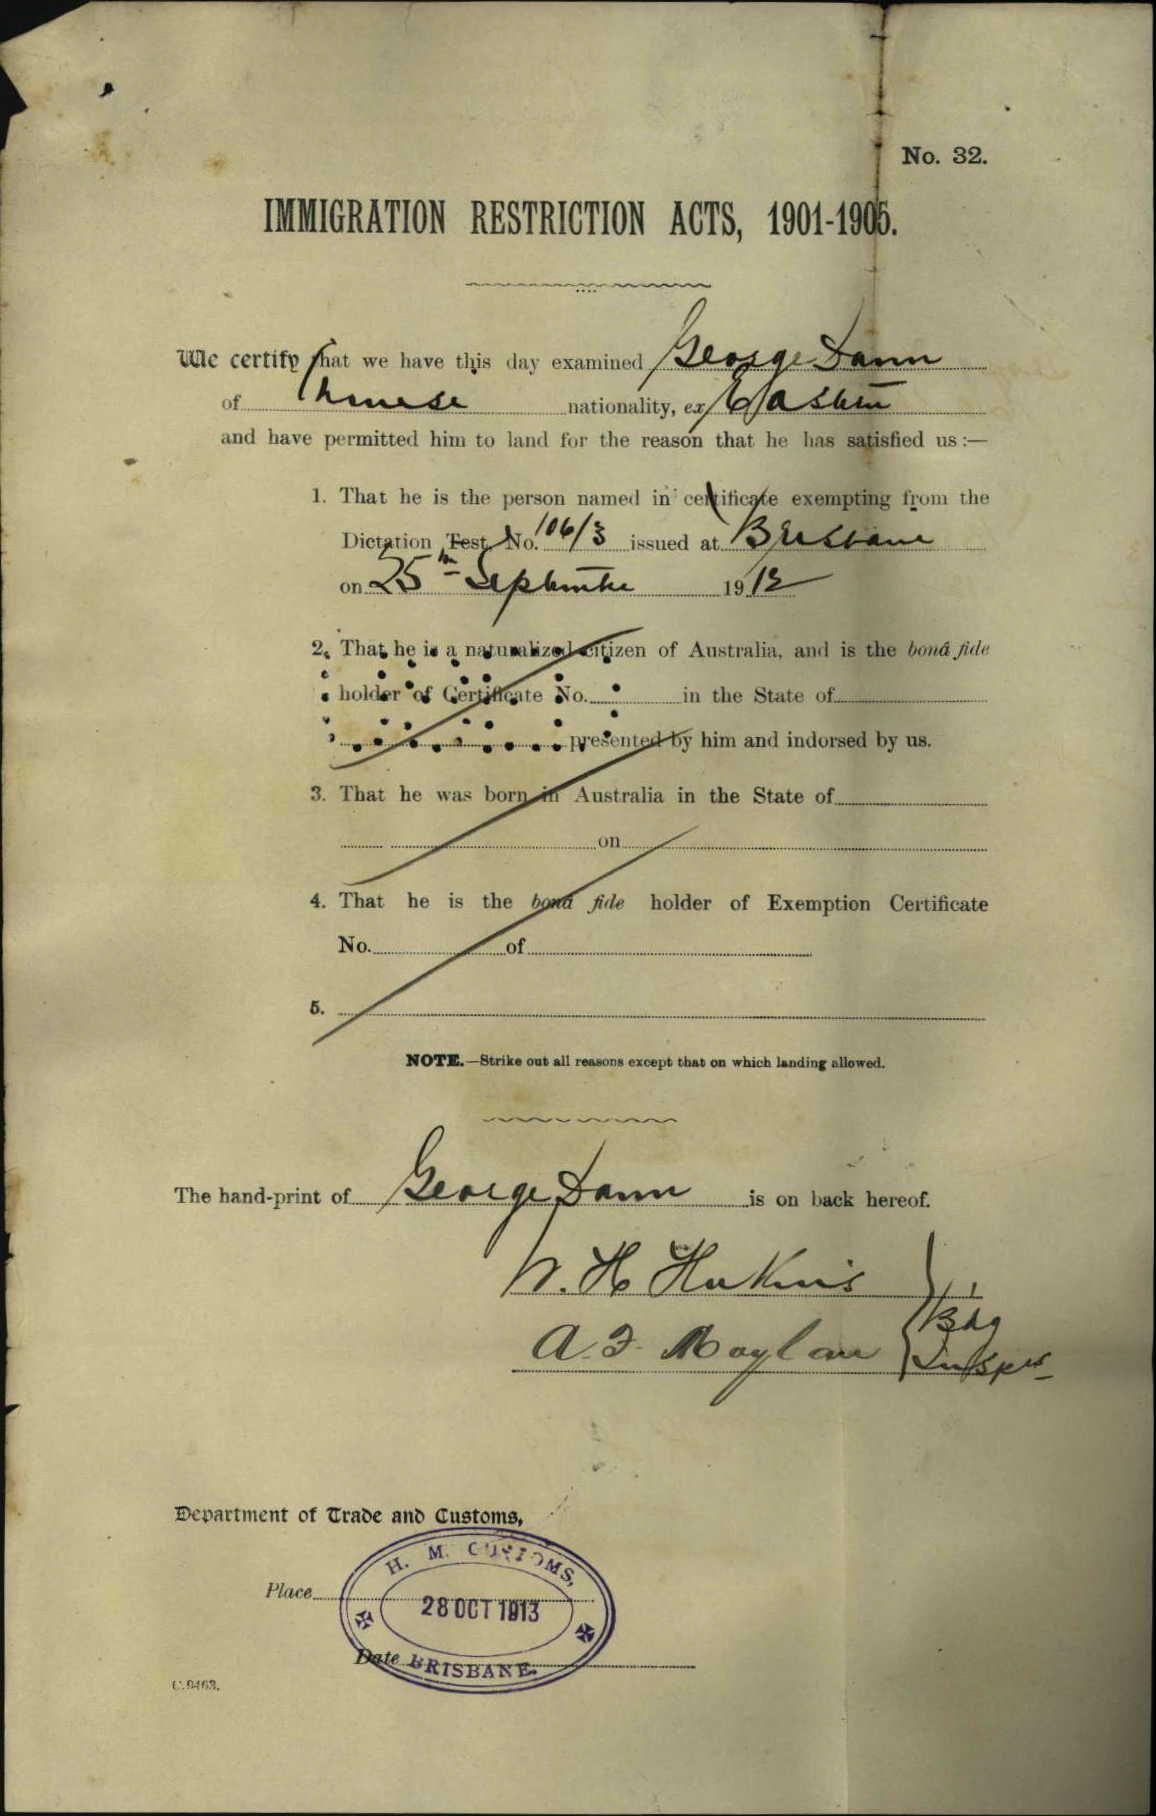 No. 32.
IMMIGRATION RESTRICTION ACTS, 1901-1905.
We certify that we have this day examined George Dann
of Chinese nationality, ex Eastern
and have permitted him to land for the reason that he has satisfied us :—
1. That he is the person named in certificate exempting from the
Dictation Test, No. 106/3 issued at Brisbane
on 25th September 1912
2. That he is a naturalized citizen of Australia, and is the bonâ fide
holder of Certificate No. in the State of
presented by him and indorsed by us.
3. That he was born in Australia in the State of
on
4. That he is the bonâ fide holder of Exemption Certificate
No. of
5.
NOTE.—Strike out all reasons except that on which landing allowed.
The hand-print of George Dann is on back hereof.
W. H.
A. F. Bdg
Insprs
Department of Trade and Customs,
H. M. CUSTOMS,
Place
28 OCT 1913
Date
BRISBANE.
C.9463.